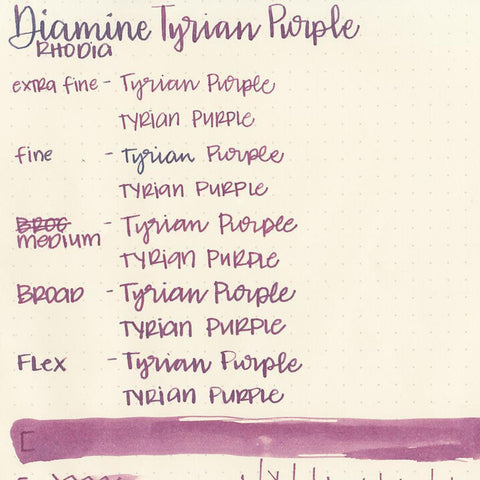 Diamine Tyrian Purple
RHODIA
extra fine - Tyrian Purple
TYRIAN PURPLE
fine - Tyrian Purple
TYRIAN PURPLE
BROC
medium - Tyrian Purple
TYRIAN PURPLE
BROAD - Tyrian Purple
TYRIAN PURPLE
FLEX - Tyrian Purple
TYRIAN PURPLE